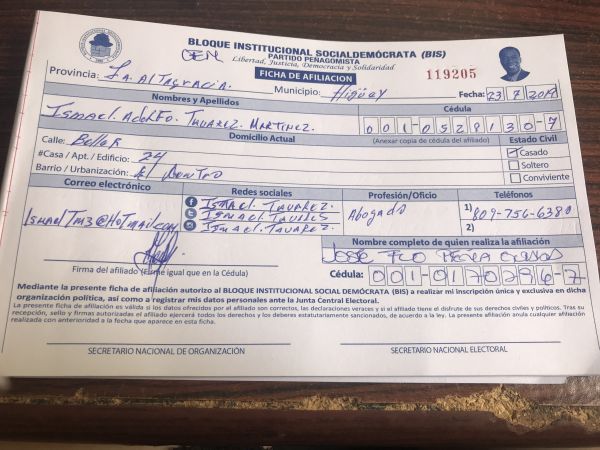 BLOQUE INSTITUCIONAL SOCIALDEMÓCRATA (BIS)
PARTIDO PEÑAGOMISTA
Libertad, Justicia, Democracia y Solidaridad
CEN
FICHA DE AFILIACION
119205
Provincia: La Altagracia. Municipio: Higüey Fecha: 23 7 2019
Nombres y Apellidos
Cédula
Ismael Adolfo Tavarez Martinez. 001-0528130-7
Domicilio Actual
(Anexar copia de cédula del afiliado)
Estado Civil
Calle: Beller
#Casa / Apt. / Edificio: 24
Barrio / Urbanización: El Centro
Casado
Soltero
Conviviente
Correo electrónico
Redes sociales
Profesión/Oficio
Teléfonos
IsmaelTm3@Hotmail.com
Ismael Tavarez.
Ismael
Ismael Tavarez.
Abogado
1) 809-756-6380
2)
Nombre completo de quien realiza la afiliación
José Fco
Firma del afiliado (Firme igual que en la Cédula)
Cédula: 001-0170296-7
Mediante la presente ficha de afiliación autorizo al BLOQUE INSTITUCIONAL SOCIAL DEMÓCRATA (BIS) a realizar mi inscripción única y exclusiva en dicha
organización política, así como a registrar mis datos personales ante la Junta Central Electoral.
La presente ficha de afiliación es válida si los datos ofrecidos por el afiliado son correctos, las declaraciones veraces y si el afiliado tiene el disfrute de sus derechos civiles y políticos. Tras su
recepción, sello y firmas autorizadas el afiliado ejercerá todos los derechos y los deberes estatutariamente sancionados, de acuerdo a la ley. La presente afiliación anula cualquier afiliación
realizada con anterioridad a la fecha que aparece en esta ficha.
SECRETARIO NACIONAL DE ORGANIZACIÓN
SECRETARIO NACIONAL ELECTORAL